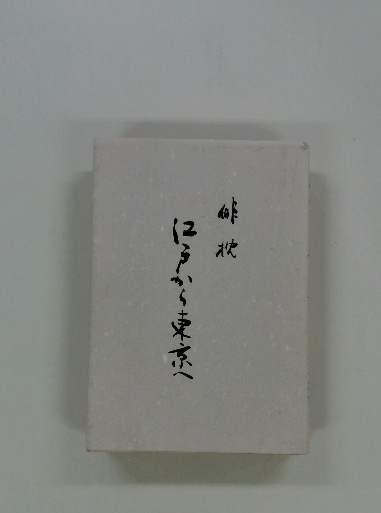 俳枕
江戸から東京へ